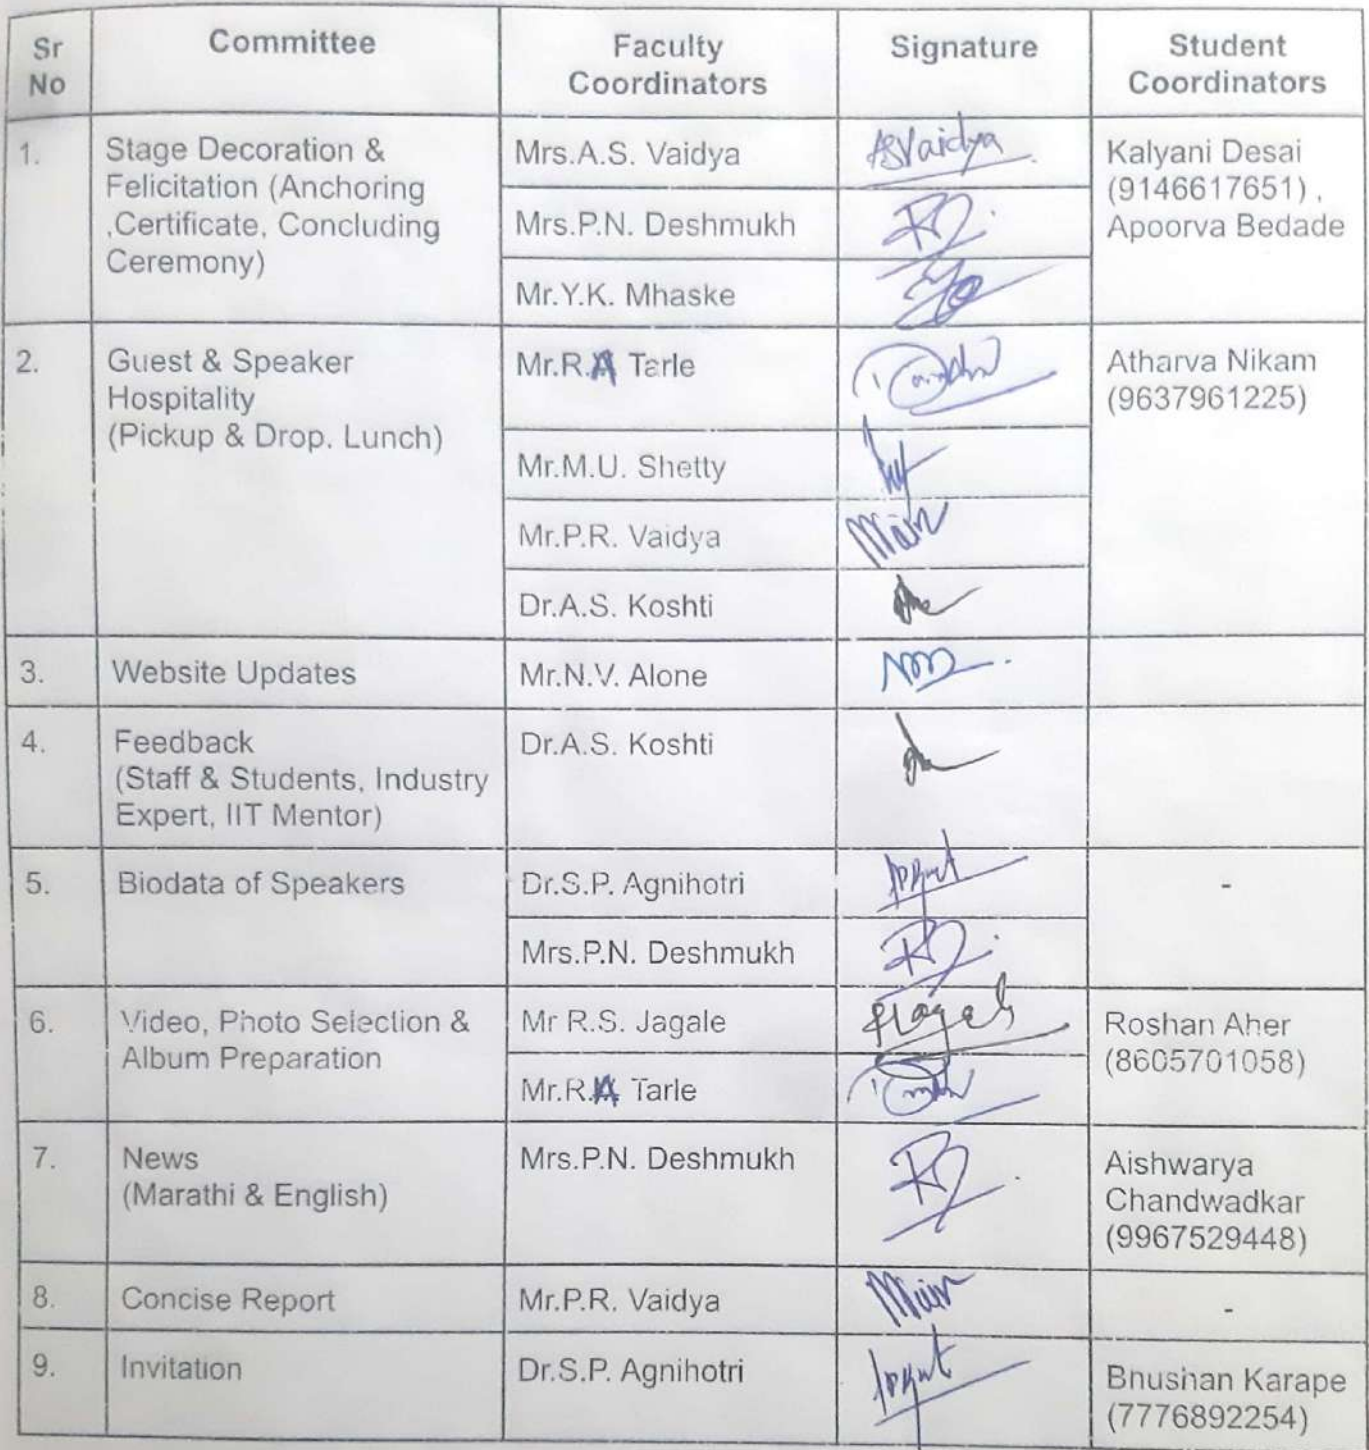 Sr No
Committee
Faculty Coordinators
Signature
Student Coordinators
1.
Stage Decoration &
Felicitation (Anchoring
,Certificate, Concluding
Ceremony)
Mrs.A.S. Vaidya
ASVaidya
Mrs.P.N. Deshmukh
Mr.Y.K. Mhaske
Kalyani Desai
(9146617651) ,
Apoorva Bedade
2.
Guest & Speaker
Hospitality
(Pickup & Drop. Lunch)
Mr.R.A Tarle
Mr.M.U. Shetty
Mr.P.R. Vaidya
Dr.A.S. Koshti
Atharva Nikam
(9637961225)
3.
Website Updates
Mr.N.V. Alone
4.
Feedback
(Staff & Students, Industry
Expert, IIT Mentor)
Dr.A.S. Koshti
5.
Biodata of Speakers
Dr.S.P. Agnihotri
-
Mrs.P.N. Deshmukh
6.
Video, Photo Selection &
Album Preparation
Mr R.S. Jagale
Mr.R.A Tarle
Roshan Aher
(8605701058)
7.
News
(Marathi & English)
Mrs.P.N. Deshmukh
Aishwarya
Chandwadkar
(9967529448)
8.
Concise Report
Mr.P.R. Vaidya
-
9.
Invitation
Dr.S.P. Agnihotri
Bhushan Karape
(7776892254)